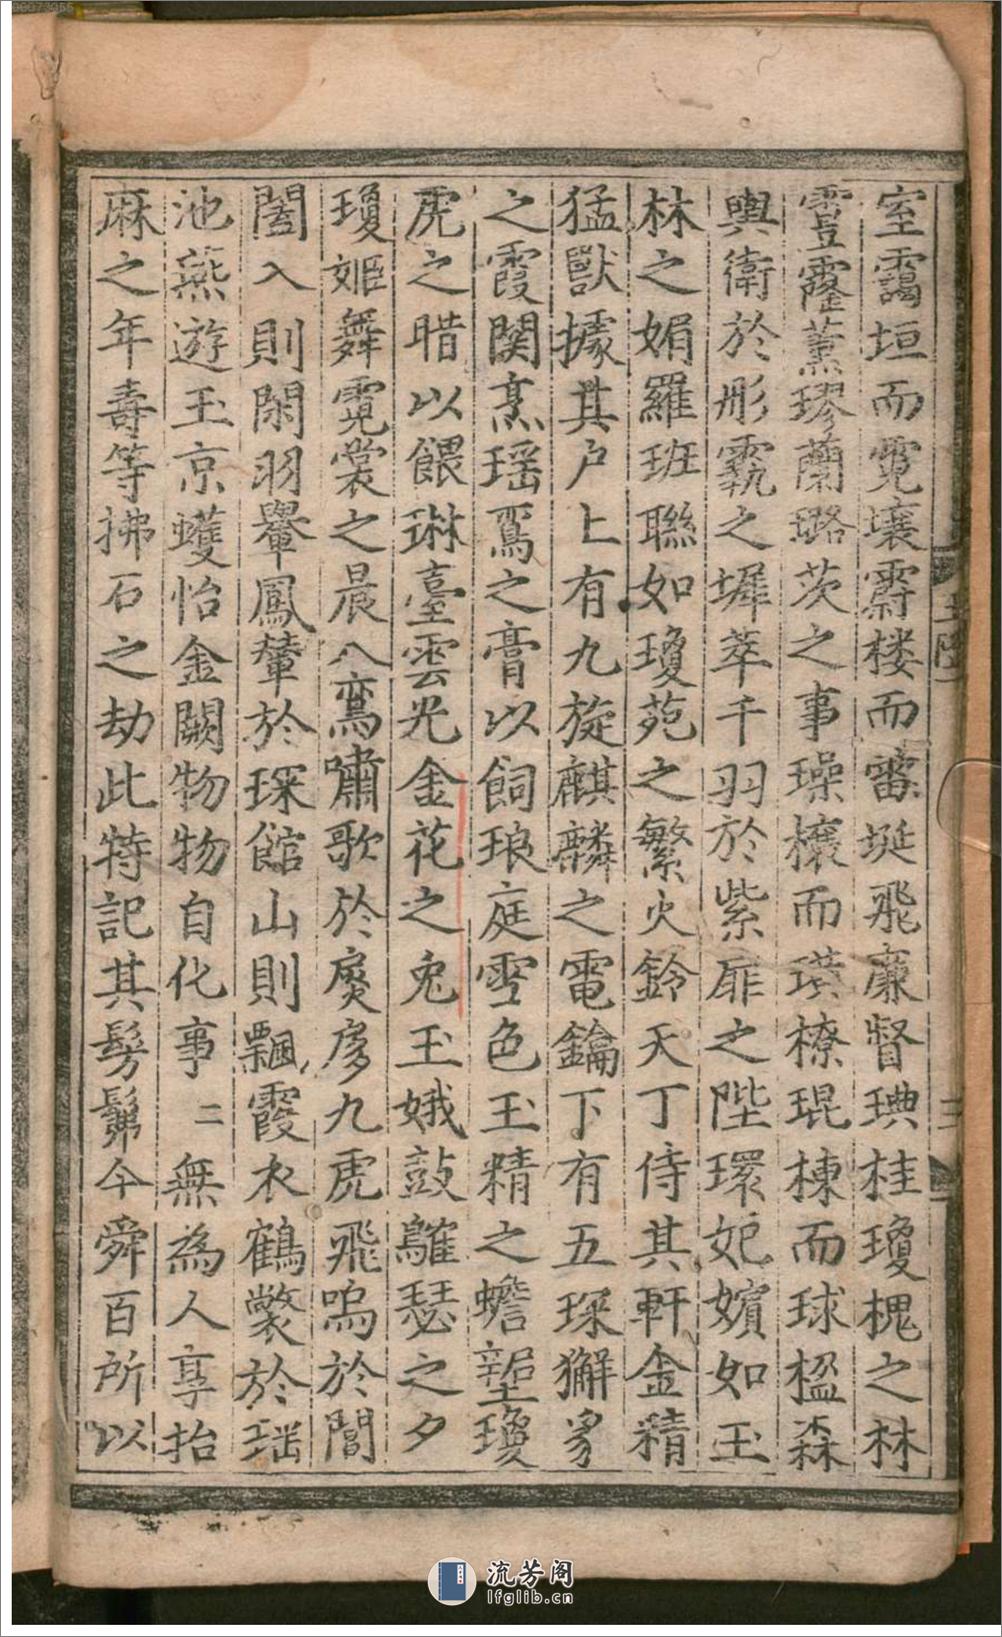 室靄垣而霓壤霨楼而䨓埏飛廉督琠桂瓊槐之林
霻霳薫璆蘭璐茨之事璪榱而璜橑琨棟而球楹森
輿衛於彤霱之墀萃千羽於紫扉之陛環妃嬪如玉
林之媚羅班聯如瓊苑之繁火鈴天丁侍其軒金精
猛獸據其户上有九旋麒麟之電鑰下有五琛獬豸
之霞関烹瑶鳶之膏以飼琅庭雪色玉精之蟾堊瓊
虎之腊以餵琳臺雲光金花之兔玉娥鼓鼉瑟之夕
瓊姬舞霓裳之晨八鸞嘯歌於扆房九虎飛鳴於閶
闔入則閑羽轝鳳輦於琛館山則飄霞衣鶴氅於瑶
池燕遊玉京蠖怡金闕物物自化事二無為人享抬
麻之年壽等拂石之劫此特記其髣髴今舜百所以
三
流芳阁
lfglib.cn